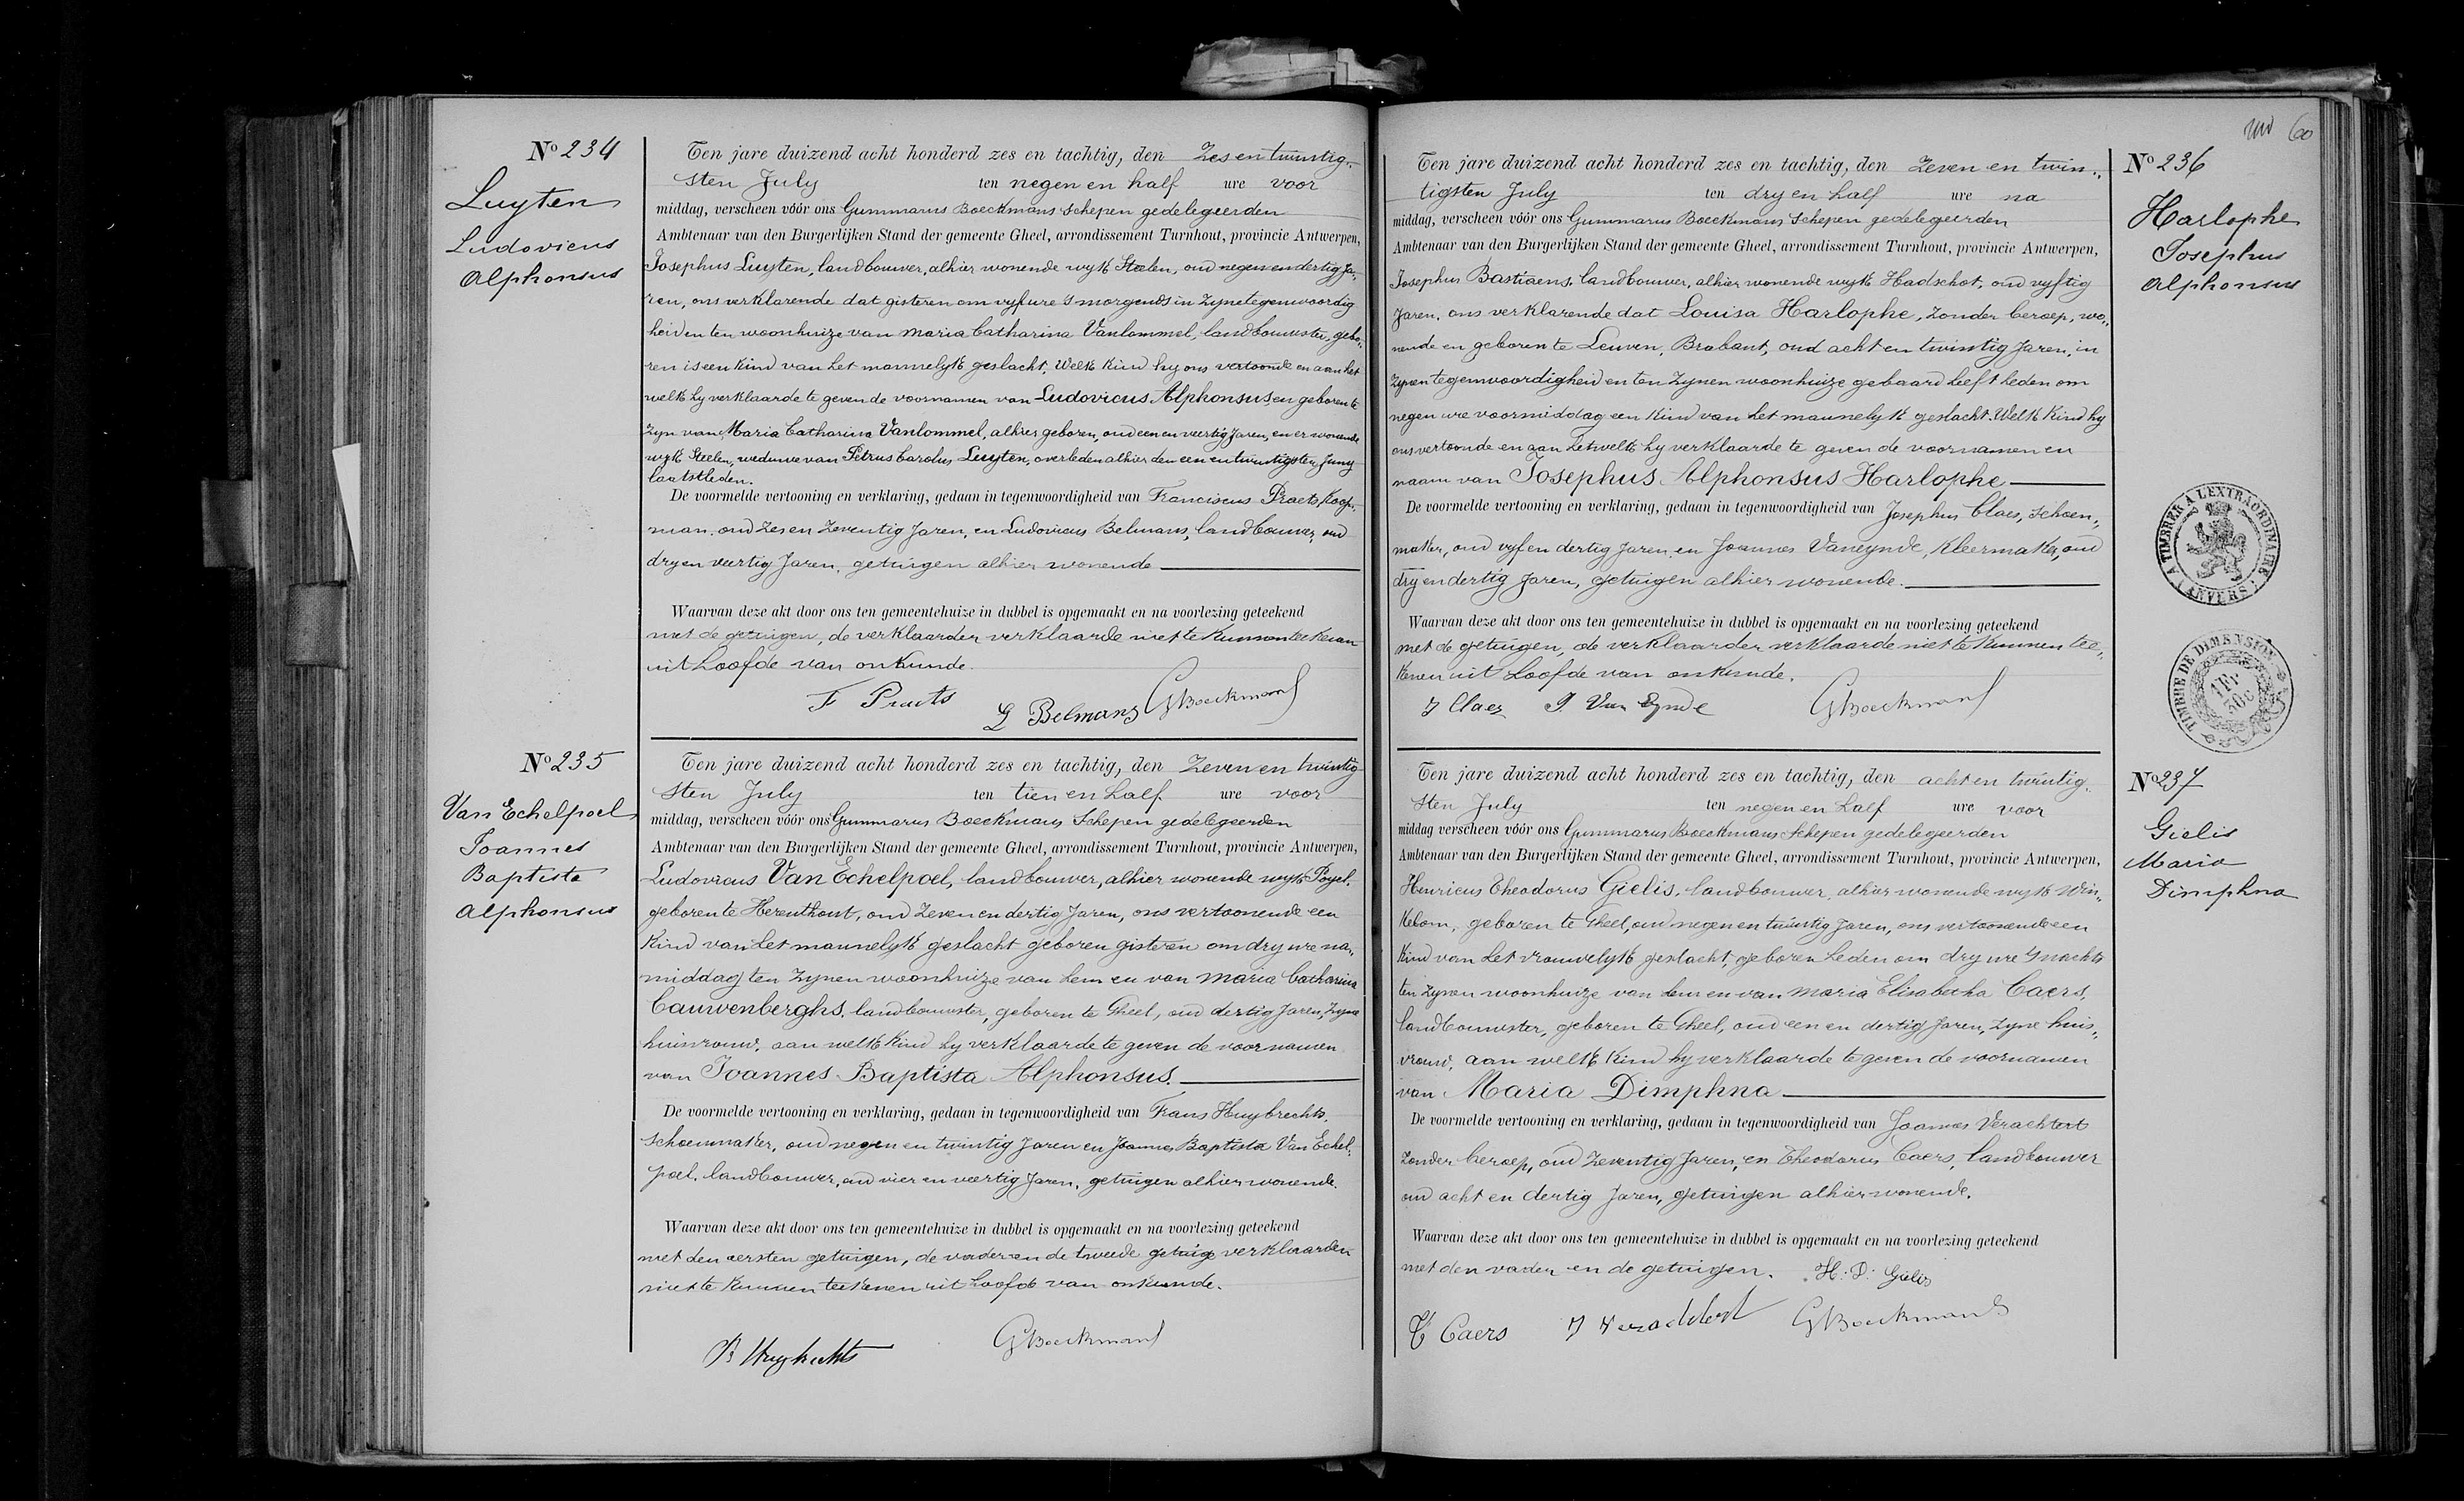 Nº 234
Luyten
Ludovicus
Alphonsus
Ten jare duizend acht honderd zes en tachtig, den Zes en twintig-
sten July ten negen en half ure voor
middag, verscheen vóór ons Gummarus Boeckmans Schepen gedelegeerden
Ambtenaar van den Burgerlijken Stand der gemeente Gheel, arrondissement Turnhout, provincie Antwerpen,
Josephus Luyten, landbouwer, alhier wonende wyk Steelen, oud negen en dertig Ja-
ren, ons verklarende dat gisteren om vyf ure 's morgends in zyne tegenwoordig
heid en ten woonhuize van Maria Catharina Vanlommel, landbouwster, gebo-
ren is een kind van het mannelyk geslacht, Welk kind hy ons vertoonde en aan het
welk hy verklaarde te geven de voornamen van Ludovicus Alphonsus, en geboren te
zyn van Maria Catharina Vanlommel, alhier geboren, oud een en veertig Jaren, en er wonende
wyk Steelen, weduwe van Petrus Carolus Luyten, overleden alhier den een en twintigsten Juny
laatstleden.
De voormelde vertooning en verklaring, gedaan in tegenwoordigheid van Franciscus Praets, koop-
man, oud zes en zeventig Jaren, en Ludovicus Belmans, landbouwer, oud
dry en veertig Jaren, getuigen alhier wonende
Waarvan deze akt door ons ten gemeentehuize in dubbel is opgemaakt en na voorlezing geteekend
met de getuigen, de verklaarder verklaarde niet te kunnen teekenen
uit hoofde van onkunde.
F Praets L Belmans GBoeckmans
Nº 235
Van Echelpoel
Joannes
Baptista
Alphonsus
Ten jare duizend acht honderd zes en tachtig, den Zeven en twintig
sten July ten tien en half ure voor
middag, verscheen vóór ons Gummarus Boeckmans Schepen gedelegeerden
Ambtenaar van den Burgerlijken Stand der gemeente Gheel, arrondissement Turnhout, provincie Antwerpen,
Ludovicus Van Echelpoel, landbouwer, alhier wonende wyk Poyel,
geboren te Herenthout, oud zeven en dertig Jaren, ons vertoonende een
kind van het mannelyk geslacht geboren gisteren om dry ure na-
middag ten zynen woonhuize van hem en van Maria Catharina
Cauwenberghs, landbouwster, geboren te Gheel, oud dertig Jaren, zyne
huisvrouw, aan welk kind hy verklaarde te geven de voornamen
van Joannes Baptista Alphonsus.
De voormelde vertooning en verklaring, gedaan in tegenwoordigheid van Frans Huybrechts,
schoenmaker, oud negen en twintig Jaren en Joannes Baptista Van Echel-
poel, landbouwer, oud vier en veertig Jaren, getuigen alhier wonende.
Waarvan deze akt door ons ten gemeentehuize in dubbel is opgemaakt en na voorlezing geteekend
met den eersten getuigen, de vader en de tweede getuige verklaarden
niet te kunnen teekenen uit hoofde van onkunde.
Huybrechts GBoeckmans
60
Ten jare duizend acht honderd zes en tachtig, den Zeven en twin-
tigsten July ten dry en half ure na
middag, verscheen vóór ons Gummarus Boeckmans Schepen gedelegeerden
Ambtenaar van den Burgerlijken Stand der gemeente Gheel, arrondissement Turnhout, provincie Antwerpen,
Josephus Bastiaens, landbouwer, alhier wonende wyk Hadschot, oud vyftig
Jaren, ons verklarende dat Louisa Harlophe, zonder beroep, wo-
nende en geboren te Leuven, Brabant, oud acht en twintig Jaren, in
zynen tegenwoordigheid en ten zynen woonhuize gebaard heeft heden om
negen ure voormiddag een kind van het mannelyk geslacht. Welk kind hy
ons vertoonde en aan hetwelk hy verklaarde te geven de voornamen en
naam van Josephus Alphonsus Harlophe
De voormelde vertooning en verklaring, gedaan in tegenwoordigheid van Josephus Claes, schoen-
maker, oud vyf en dertig Jaren, en Joannes Vaneynde, kleermaker, oud
dry en dertig Jaren, getuigen alhier wonende.
Waarvan deze akt door ons ten gemeentehuize in dubbel is opgemaakt en na voorlezing geteekend
met de getuigen, de verklaarder verklaarde niet te kunnen tee-
kenen uit hoofde van onkunde.
J Claes J. Van Eynde GBoeckmans
Nº 236
Harlophe
Josephus
Alphonsus
A TIMBRER A L'EXTRAORDINAIRE
ANVERS
TIMBRE DE DIMENSION
1 Fr
30c
Ten jare duizend acht honderd zes en tachtig, den acht en twintig-
sten July ten negen en half ure voor
middag verscheen vóór ons Gummarus Boeckmans Schepen gedelegeerden
Ambtenaar van den Burgerlijken Stand der gemeente Gheel, arrondissement Turnhout, provincie Antwerpen,
Henricus Theodorus Gielis, landbouwer, alhier wonende wyk Win-
kelom, geboren te Gheel, oud negen en twintig Jaren, ons vertoonende een
kind van het vrouwelyk geslacht, geboren heden om dry ure 's nachts
ten zynen woonhuize van hem en van Maria Elisabetha Caers,
landbouwster, geboren te Gheel, oud een en dertig Jaren, zyne huis-
vrouw, aan welk kind hy verklaarde te geven de voornamen
van Maria Dimphna
De voormelde vertooning en verklaring, gedaan in tegenwoordigheid van Joannes Verachtert
zonder beroep, oud zeventig Jaren, en Theodorus Caers, landbouwer
oud acht en dertig Jaren, getuigen alhier wonende.
Waarvan deze akt door ons ten gemeentehuize in dubbel is opgemaakt en na voorlezing geteekend
met den vader en de getuigen. H. D. Gielis
T Caers J Verachtert GBoeckmans
Nº 237
Gielis
Maria
Dimphna